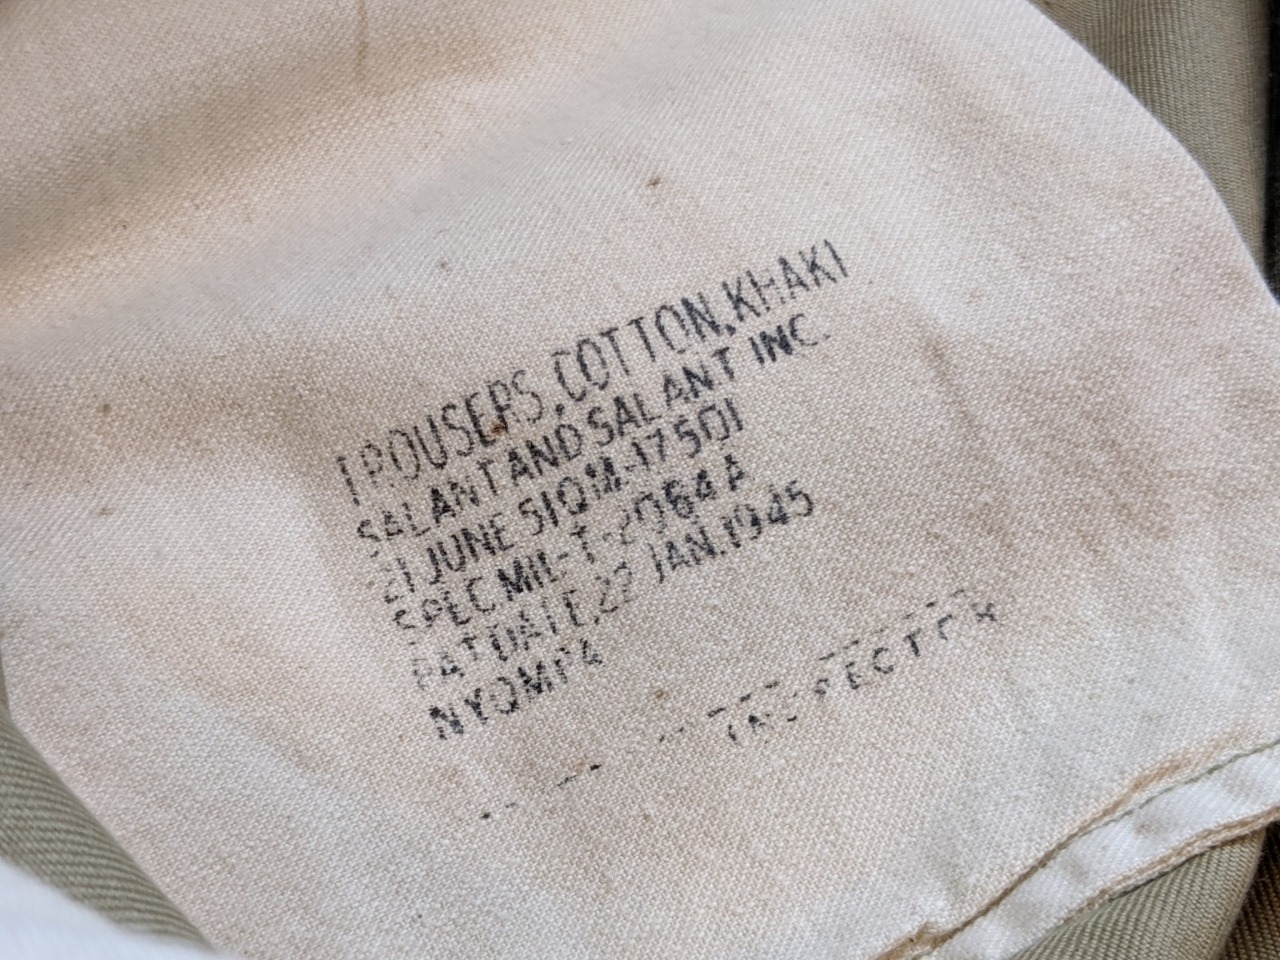 TROUSERS, COTTON, KHAKI
SALANT AND SALANT INC.
21 JUNE 51 QM-17501
SPEC MIL-T-2064A
PAT DATE, 22 JAN. 1945
NYQMPA
INSPECTOR